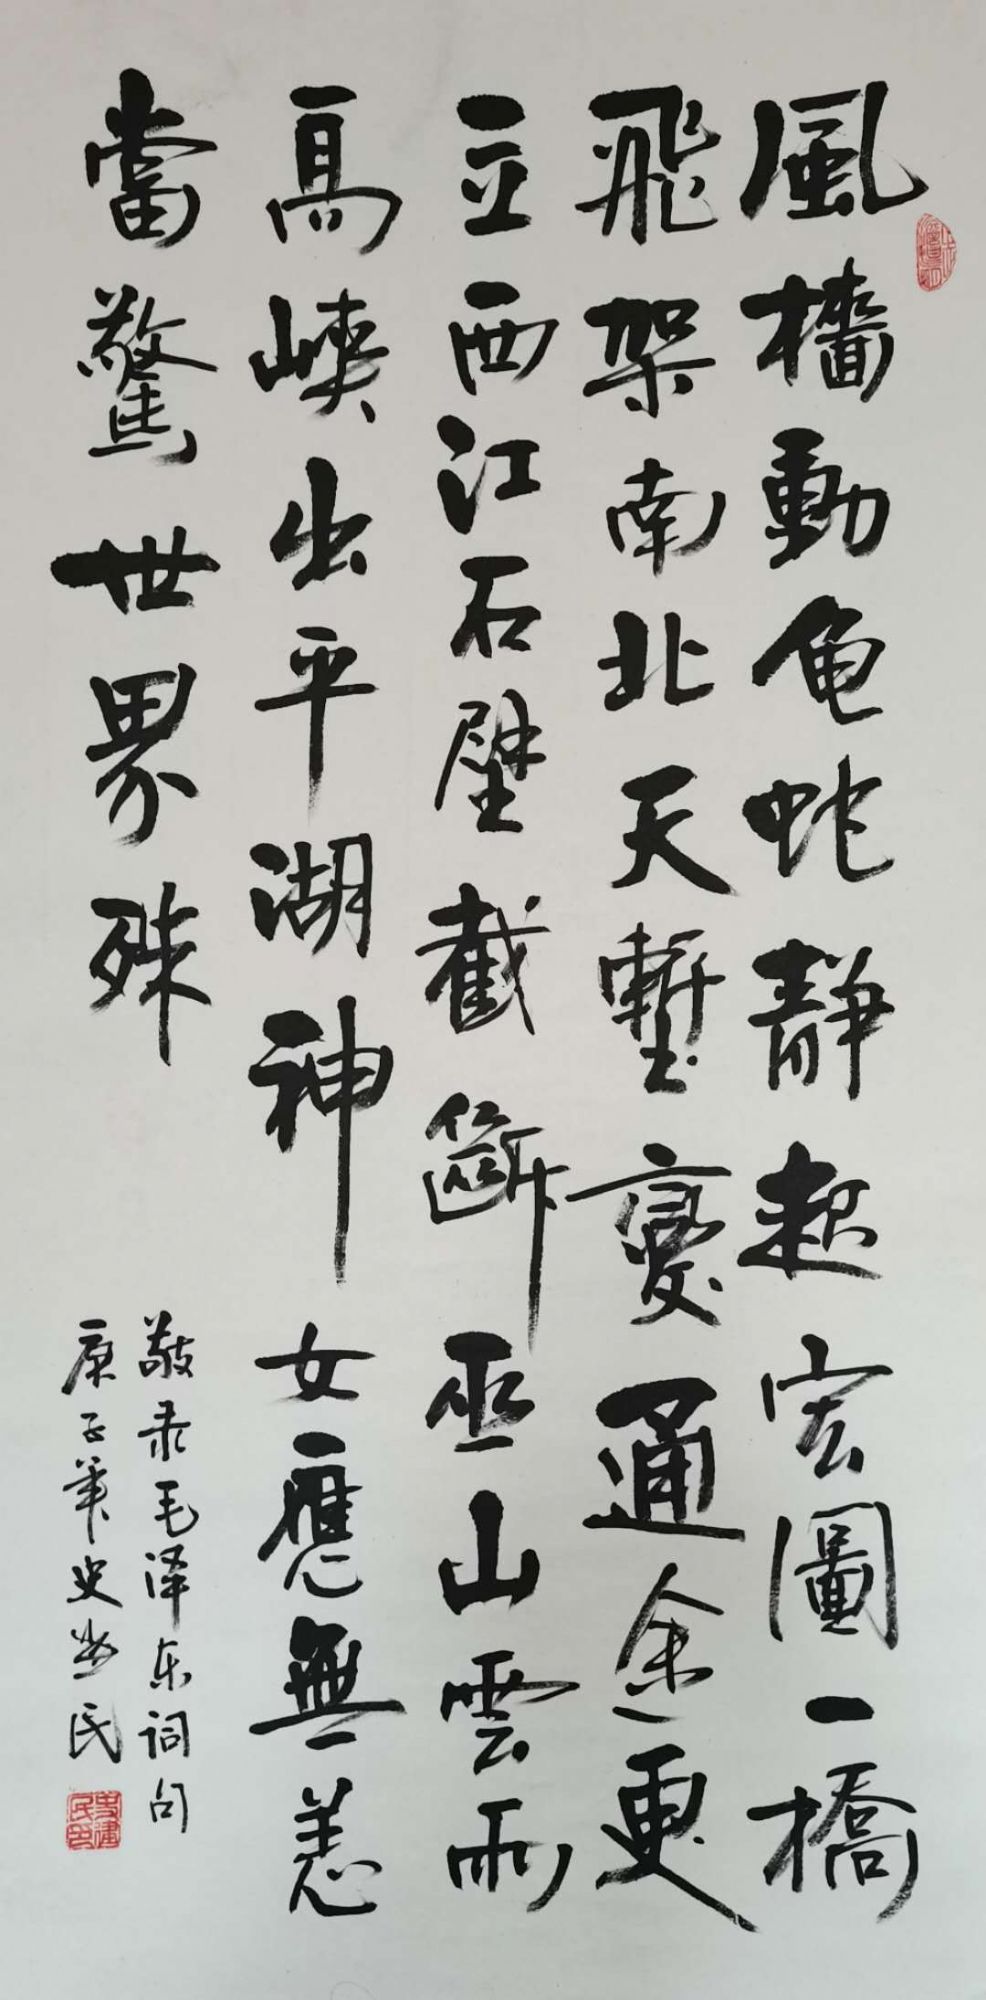 風檣動龟蛇静起宏圖一橋
飛架南北天塹變通途更
立西江石壁截斷巫山雲雨
高峽出平湖神女應無恙
當驚世界殊
敬录毛泽东词句
庚子年史建民